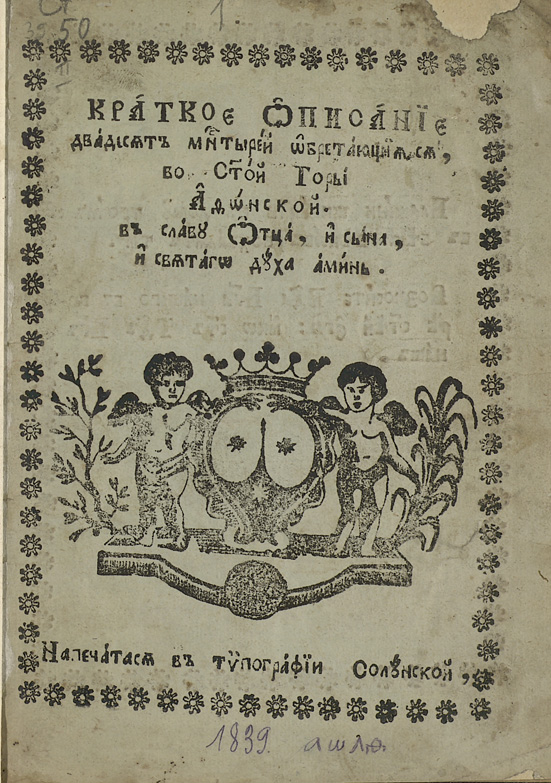 50
1
КРА́ТКОЕ Ѡ҆ПИСА́НЇЕ
двадїсѧтъ мн҃тырей ѡ҆брета́ющїѧсѧ,
во Ст҃о́й Горы̀
А҆ѳѡ́нской.
въ сла́вꙋ Ѻ҆тца̀, и҆ сы́на,
и҆ свѧта́гѡ дꙋ́ха а҆ми́нь.
Напеча́тасѧ въ тѷпогра́фїи Солꙋ́нской,
1839. аѡлѳ.